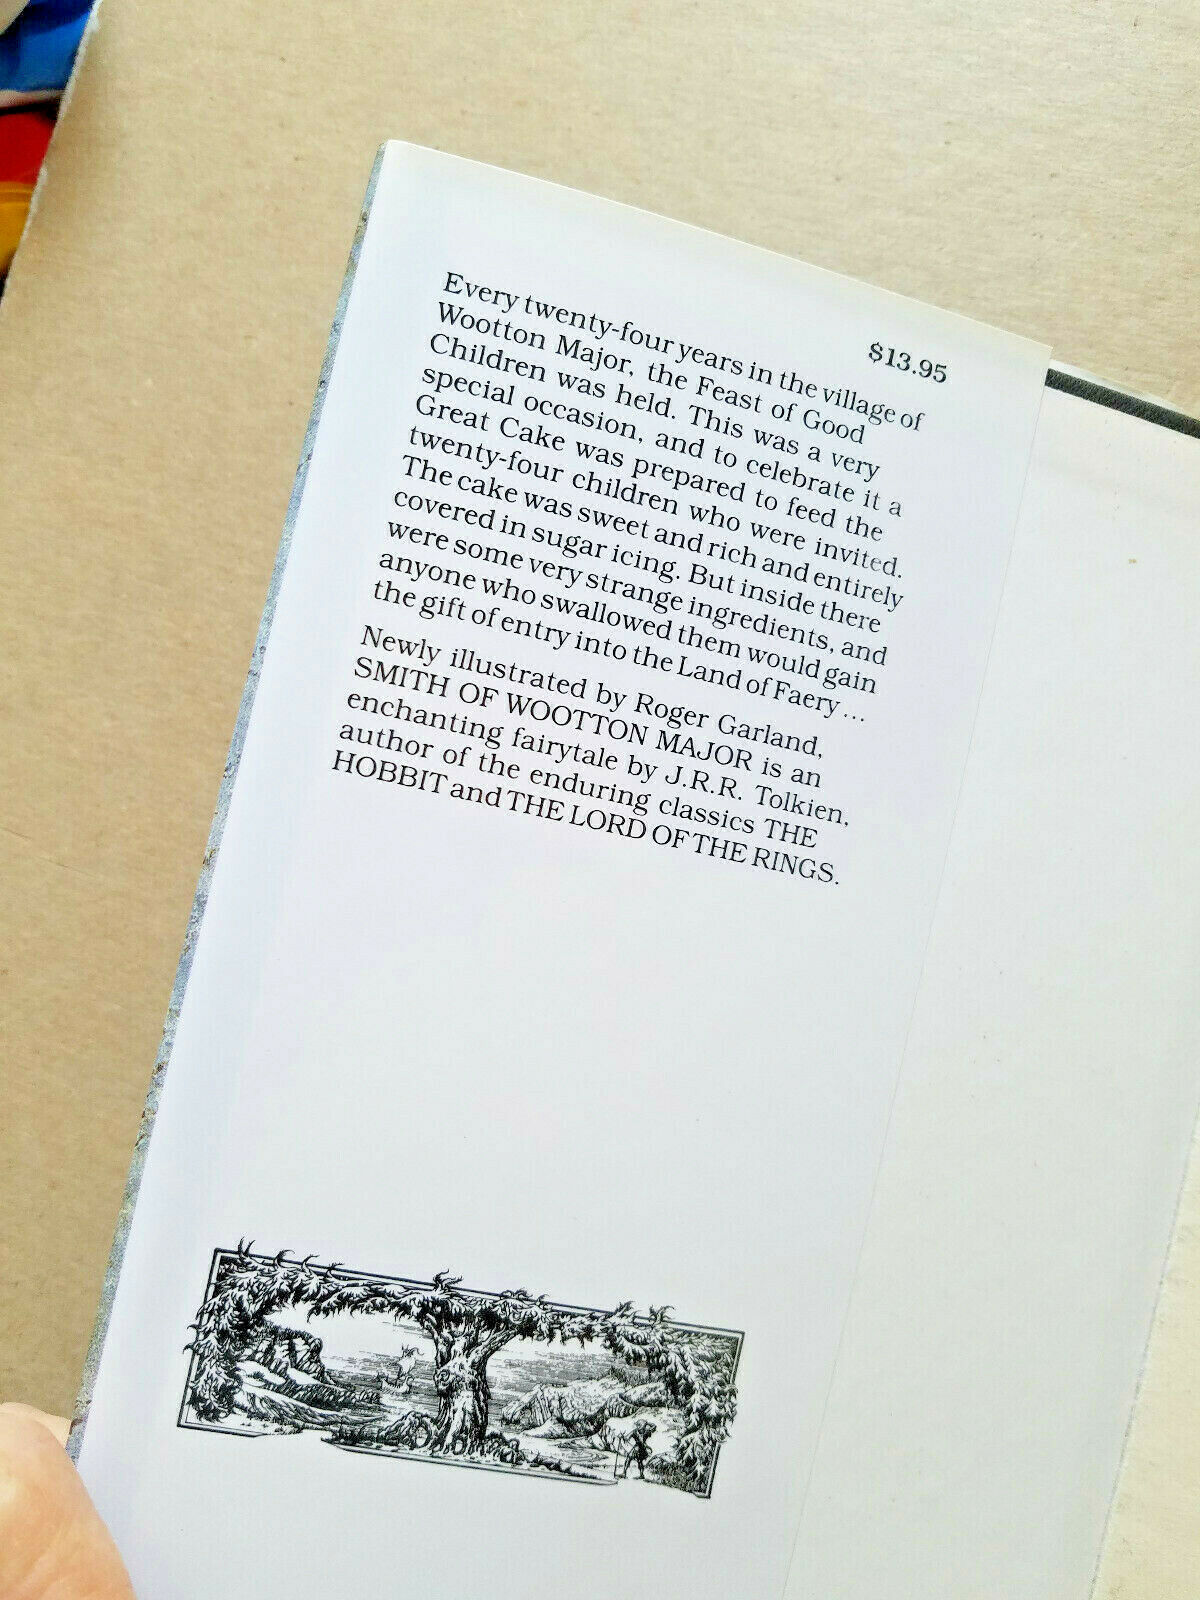 $13.95
Every twenty-four years in the village of
Wootton Major, the Feast of Good
Children was held. This was a very
special occasion, and to celebrate it a
Great Cake was prepared to feed the
twenty-four children who were invited.
The cake was sweet and rich and entirely
covered in sugar icing. But inside there
were some very strange ingredients, and
anyone who swallowed them would gain
the gift of entry into the Land of Faery...
Newly illustrated by Roger Garland,
SMITH OF WOOTTON MAJOR is an
enchanting fairytale by J.R.R. Tolkien,
author of the enduring classics THE
HOBBIT and THE LORD OF THE RINGS.